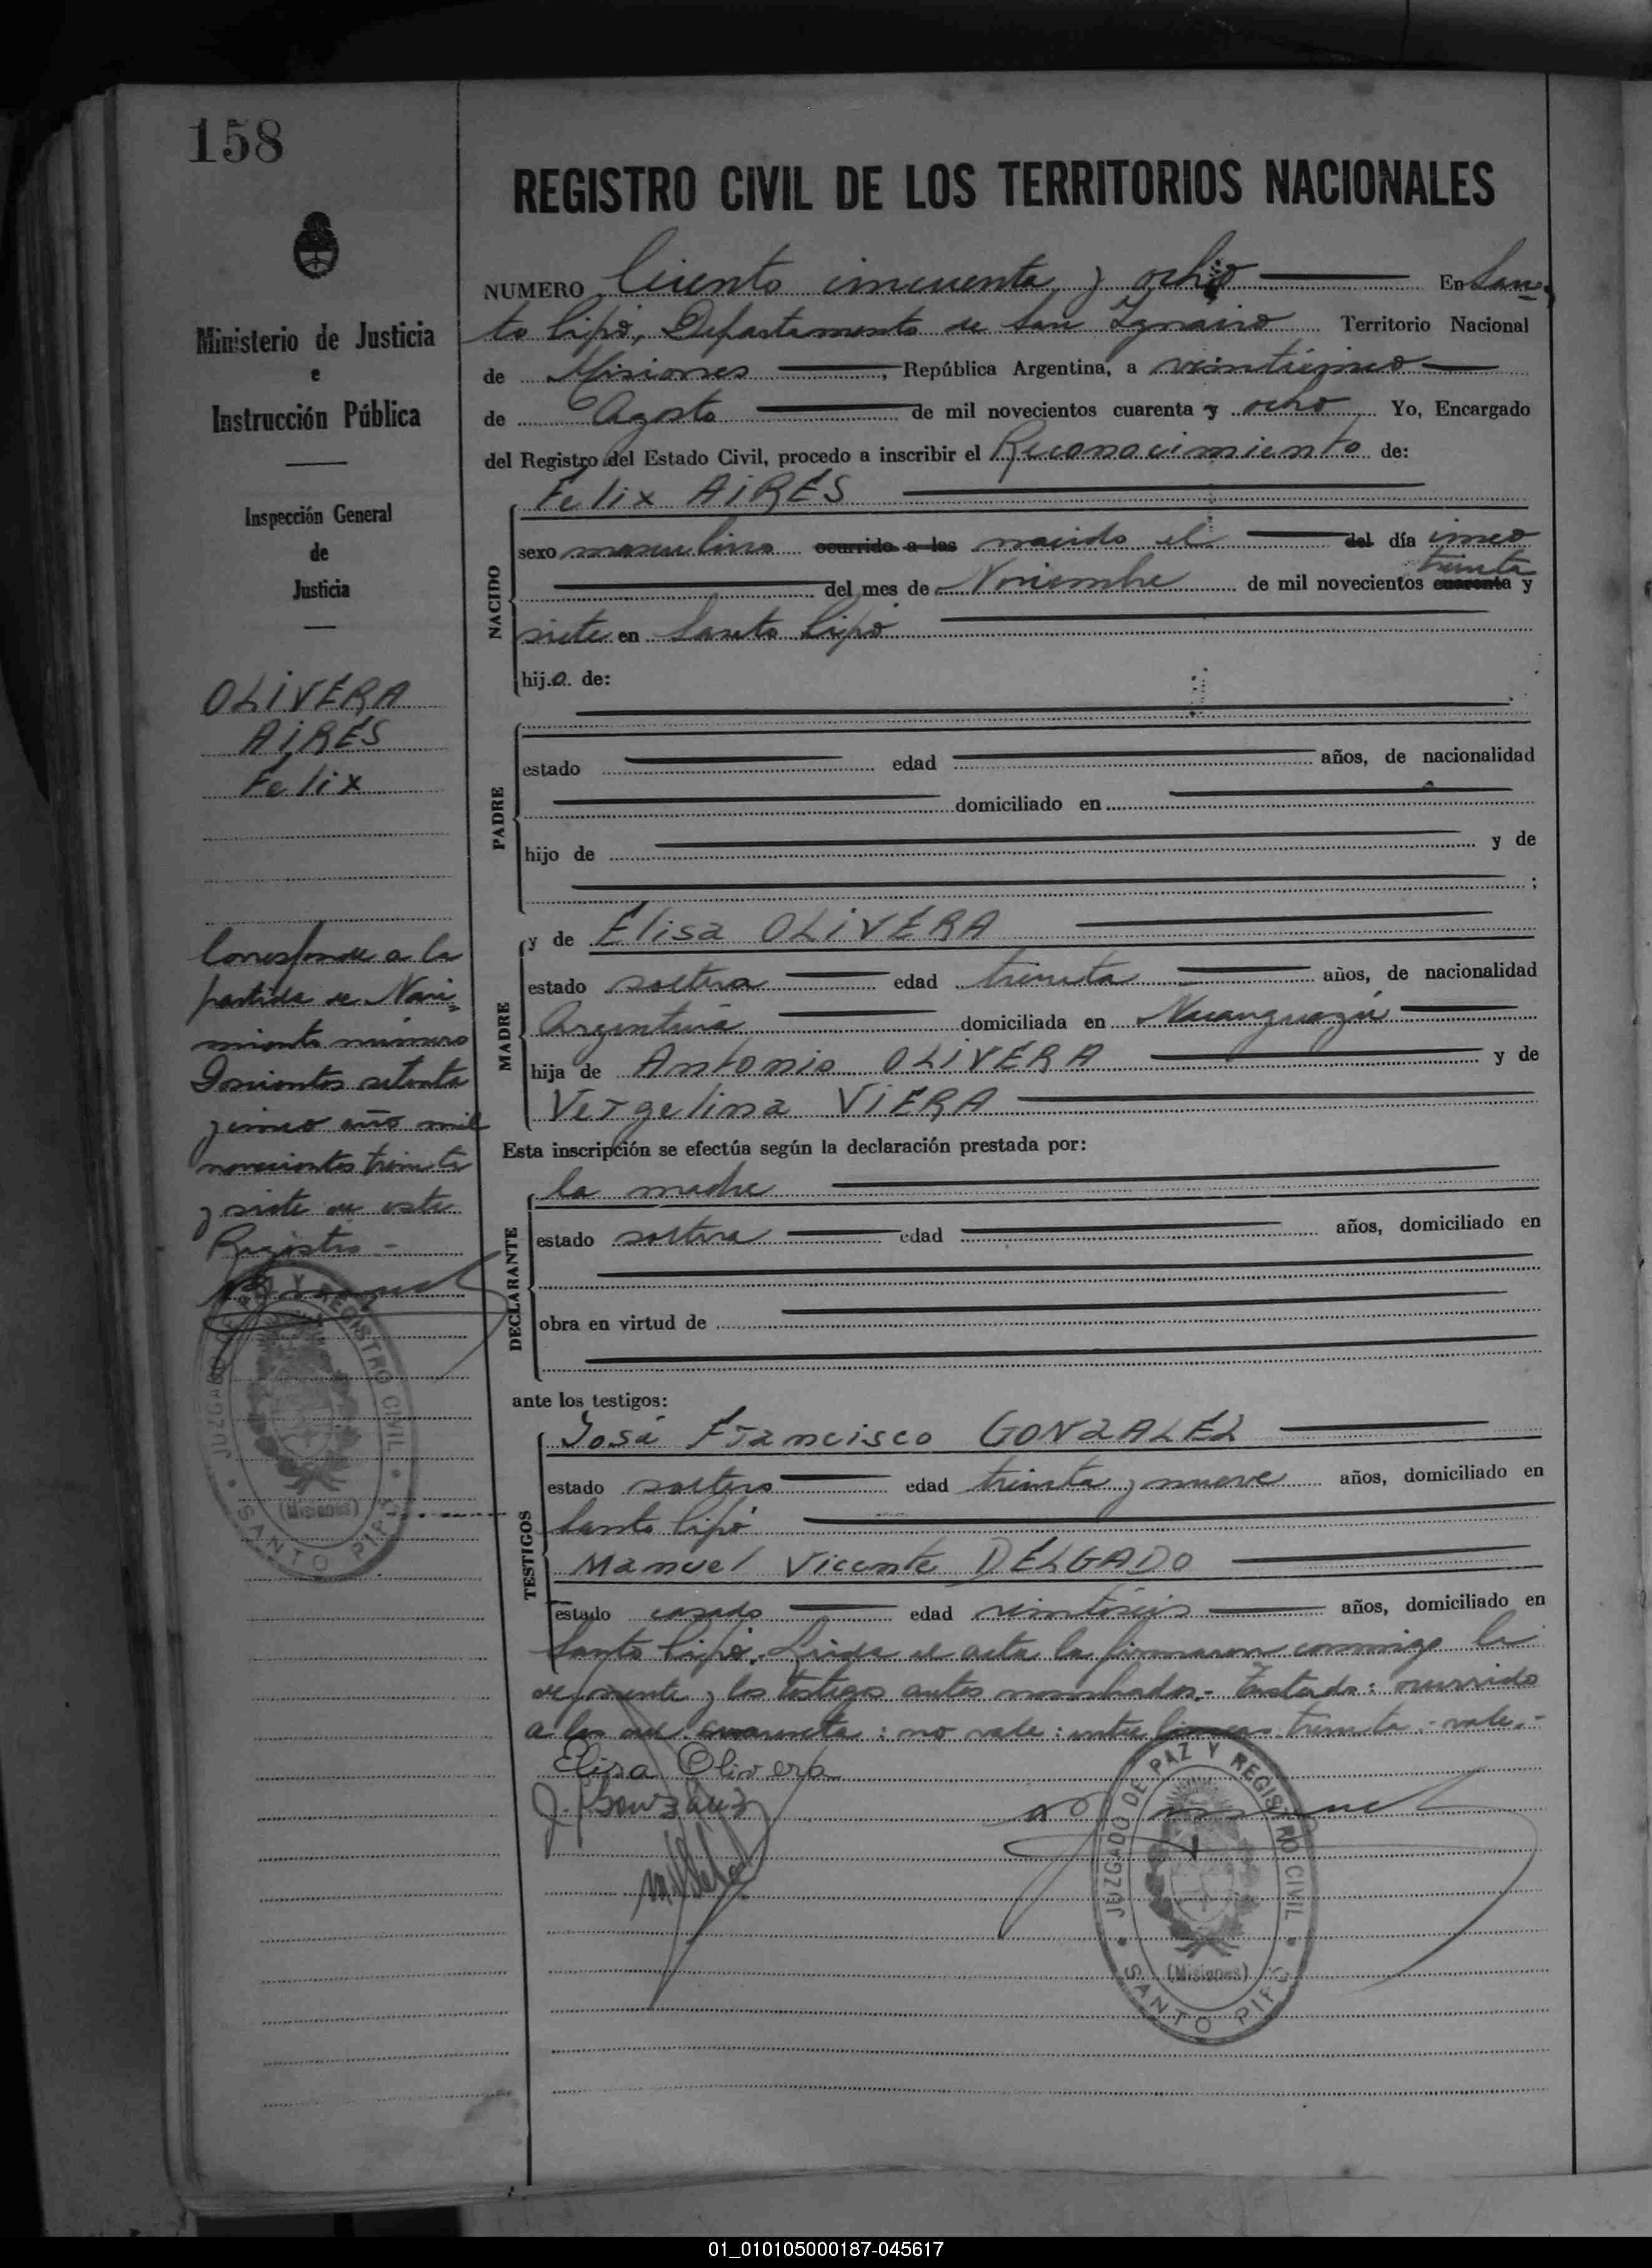 158
REGISTRO CIVIL DE LOS TERRITORIOS NACIONALES
NUMERO Ciento cincuenta y ocho En San-
to Pipó, Departamento de San Ignacio Territorio Nacional
de Misiones, República Argentina, a veinticinco
de Agosto de mil novecientos cuarenta y ocho Yo, Encargado
del Registro del Estado Civil, procedo a inscribir el Reconocimiento de:
Felix AIRES
NACIDO
sexo masculino ocurrido a las nacido el del día cinco
del mes de Noviembre de mil novecientos cuarenta treinta y
siete en Santo Pipó
hijo de:
PADRE
estado edad años, de nacionalidad
domiciliado en
hijo de y de
;
MADRE
y de Elisa OLIVERA
estado soltera edad treinta años, de nacionalidad
Argentina domiciliada en Ñacanguazú
hija de Antonio OLIVERA y de
Vergelina VIERA
Esta inscripción se efectúa según la declaración prestada por:
DECLARANTE
la madre
estado soltera edad años, domiciliado en
obra en virtud de
ante los testigos:
TESTIGOS
José Francisco GONZALEZ
estado soltero edad treinta y nueve años, domiciliado en
Santo Pipó
Manuel Vicente DELGADO
estado casado edad veintiseis años, domiciliado en
Santo Pipó. Leida el acta la firmaron conmigo la
deponente y los testigos antes nombrados.- Testado: ocurrido
a las del cuarenta: no vale: entre lineas treinta - vale.-
Elisa Olivera
J. F. Gonzalez
JUZGADO DE PAZ Y REGISTRO CIVIL
(Misiones)
SANTO PIPO
Ministerio de Justicia
e
Instrucción Pública
Inspección General
de
Justicia
OLIVERA
AIRES
Felix
Corresponde a la
partida de Naci-
miento número
Doscientos setenta
y cinco año mil
novecientos treinta
y siete de este
Registro -
JUZGADO DE PAZ Y REGISTRO CIVIL
(Misiones)
SANTO PIPO
01_010105000187-045617